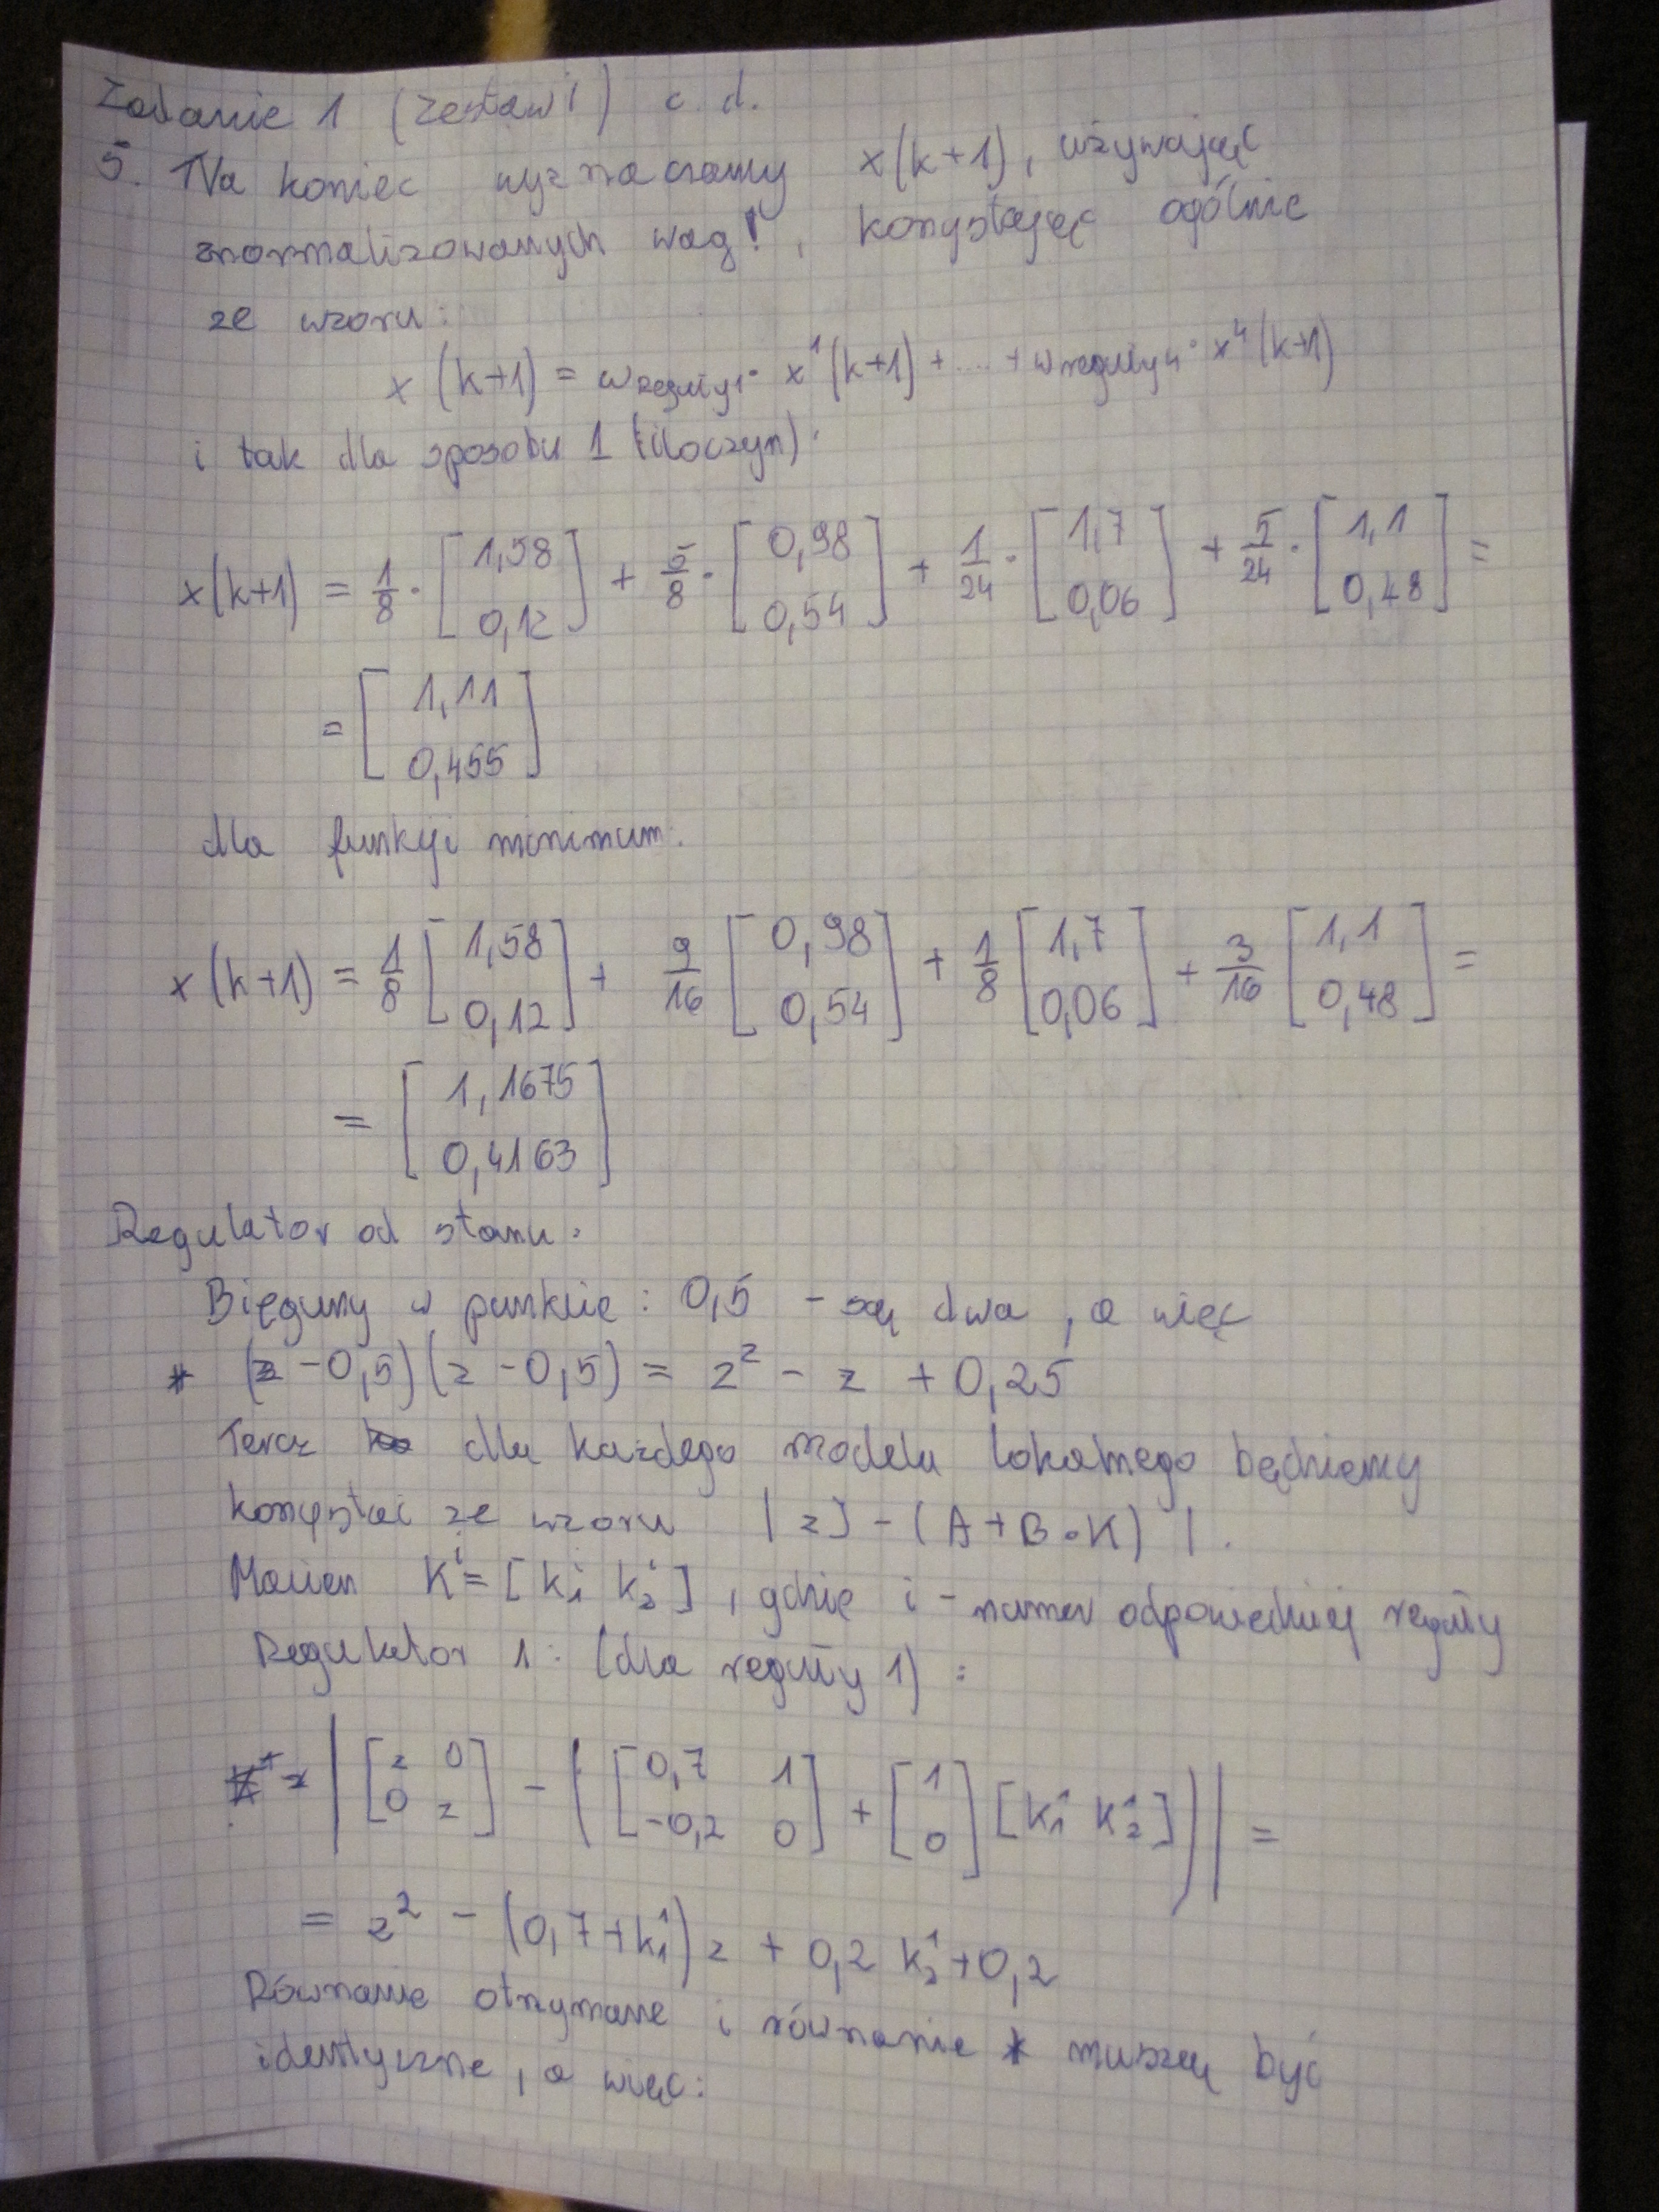 Zadanie 1 (zestaw 1) c.d.
5. Na koniec wyznaczamy x(k+1), używając
znormalizowanych wag!, korzystając ogólnie
ze wzoru:
x(k+1) = w reguły1 · x¹(k+1) + .... + w reguły4 · x⁴(k+1)
i tak dla sposobu 1 (iloczyn):
x(k+1) = 1/8 · [1,58 0,12] + 5/8 · [0,98 0,54] + 1/24 · [1,7 0,06] + 5/24 · [1,1 0,48] =
= [1,11 0,455]
dla funkcji minimum:
x(k+1) = 1/8 [1,58 0,12] + 9/16 [0,98 0,54] + 1/8 [1,7 0,06] + 3/16 [1,1 0,48] =
= [1,1675 0,4163]
Regulator od stanu:
Bieguny w punkcie: 0,5 - są dwa, a więc
* (z-0,5)(z-0,5) = z² - z + 0,25
Teraz dla każdego modelu lokalnego będziemy
korzystać ze wzoru |zJ - (A+B·K)|.
Macierz Kⁱ = [k₁ⁱ k₂ⁱ], gdzie i - numer odpowiedniej reguły
Regulator 1: (dla reguły 1):
|[z 0 0 z] - ([0,7 1 -0,2 0] + [1 0] [k₁¹ k₂¹])| =
= z² - (0,7+k₁¹)z + 0,2 k₂¹ + 0,2
Równanie otrzymane i równanie * muszą być
identyczne, a więc: